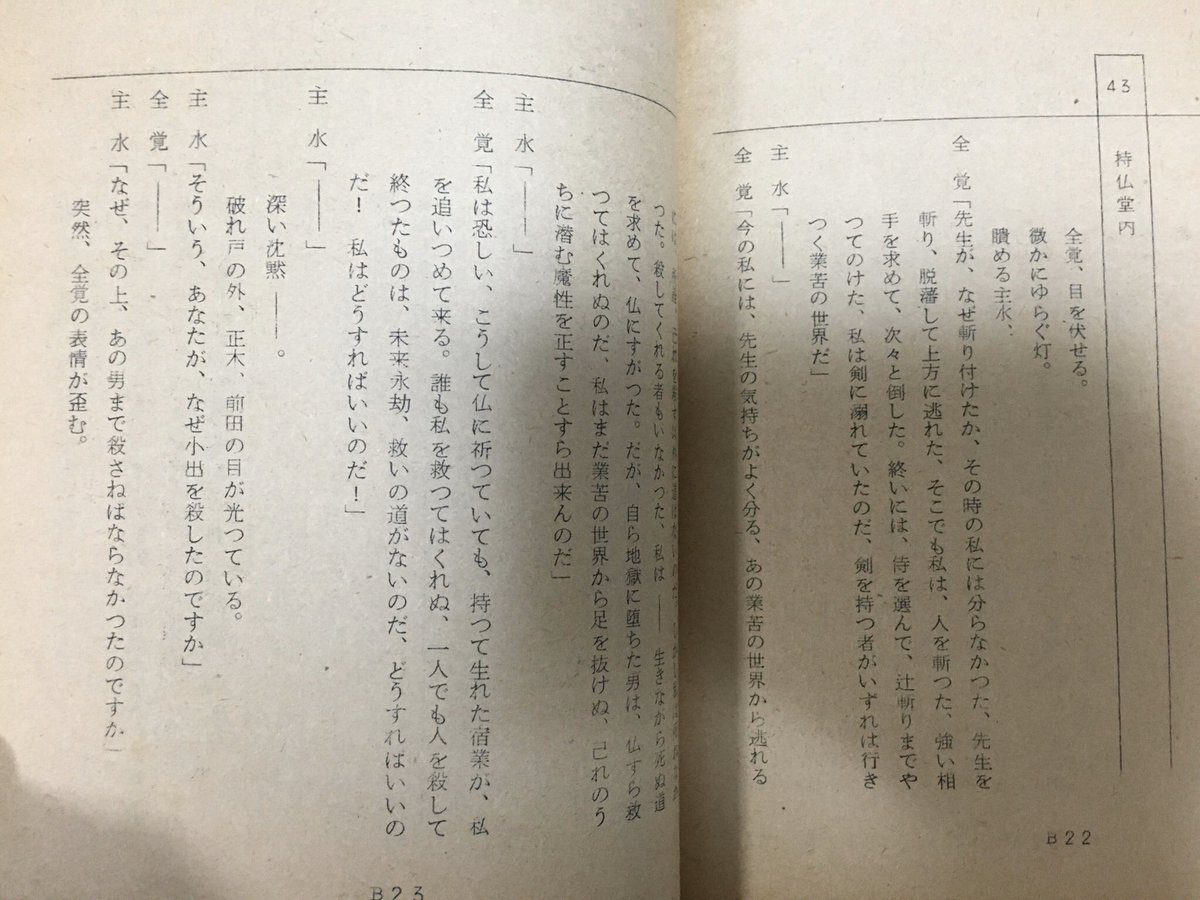 43
持仏堂内
全覚、目を伏せる。
微かにゆらぐ灯。
瞶める主水、
全覚「先生が、なぜ斬り付けたか、その時の私には分らなかつた、先生を
斬り、脱藩して上方に逃れた、そこでも私は、人を斬つた、強い相
手を求めて、次々と倒した。終いには、侍を選んで、辻斬りまでや
つてのけた、私は剣に溺れていたのだ、剣を持つ者がいずれは行き
つく業苦の世界だ」
主水「――」
全覚「今の私には、先生の気持ちがよく分る、あの業苦の世界から逃れる
B22
つた。殺してくれる者もいなかつた、私は――生きながら死ぬ道
を求めて、仏にすがつた。だが、自ら地獄に堕ちた男は、仏すら救
つてはくれぬのだ、私はまだ業苦の世界から足を抜けぬ、己れのう
ちに潜む魔性を正すことすら出来んのだ」
主水「――」
全覚「私は恐しい、こうして仏に祈つていても、持つて生れた宿業が、私
を追いつめて来る。誰も私を救つてはくれぬ、一人でも人を殺して
終つたものは、未来永劫、救いの道がないのだ、どうすればいいの
だ！　私はどうすればいいのだ！」
主水「――」
深い沈黙――。
破れ戸の外、正木、前田の目が光つている。
主水「そういう、あなたが、なぜ小出を殺したのですか」
全覚「――」
主水「なぜ、その上、あの男まで殺さねばならなかつたのですか」
突然、全覚の表情が歪む。
B23